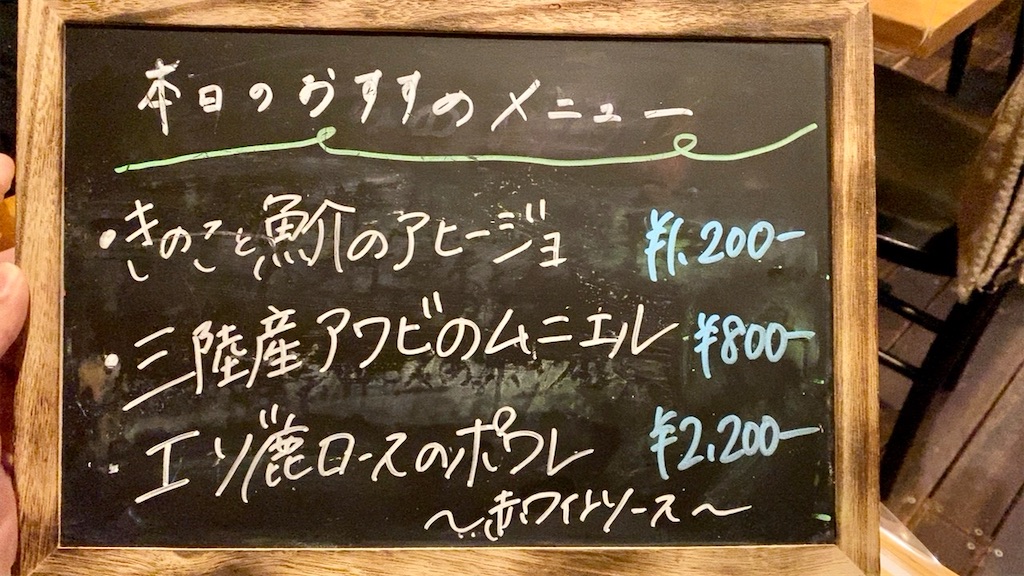 本日のおすすめメニュー
・きのこと魚介のアヒージョ ¥1,200-
・三陸産アワビのムニエル ¥800-
・エゾ鹿ロースのポワレ ¥2,200-
～赤ワインソース～